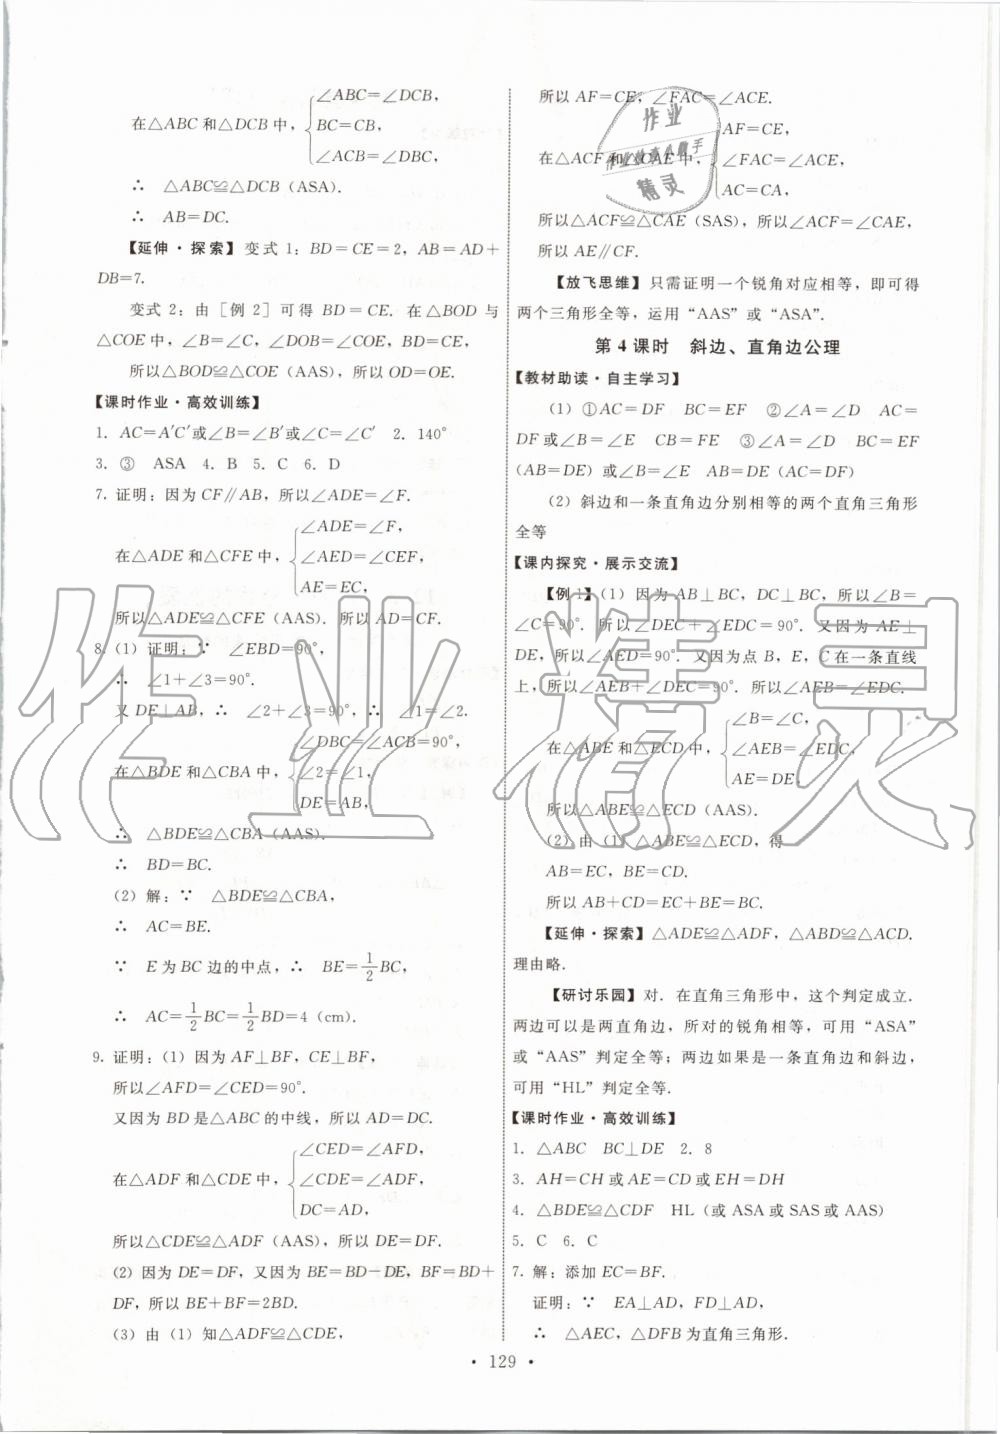 ∠ABC=∠DCB,
在△ABC 和△DCB 中, BC=CB,
∠ACB=∠DBC,
∴ △ABC≌△DCB (ASA).
∴ AB=DC.
【延伸·探索】变式 1: BD=CE=2, AB=AD+
DB=7.
变式 2: 由 [例 2] 可得 BD=CE. 在△BOD 与
△COE 中, ∠B=∠C, ∠DOB=∠COE, BD=CE.
所以△BOD≌△COE (AAS), 所以 OD=OE.
【课时作业·高效训练】
1. AC=A′C′或∠B=∠B′或∠C=∠C′ 2. 140°
3. ③ ASA 4. B 5. C 6. D
7. 证明: 因为 CF∥AB, 所以∠ADE=∠F.
∠ADE=∠F,
在△ADE 和△CFE 中, ∠AED=∠CEF,
AE=EC,
所以△ADE≌△CFE (AAS). 所以 AD=CF.
8. (1) 证明: ∵ ∠EBD=90°,
∴ ∠1+∠3=90°.
又 DE⊥AB, ∴ ∠2+∠3=90°, ∴ ∠1=∠2.
∠DBC=∠ACB=90°,
在△BDE 和△CBA 中, ∠2=∠1,
DE=AB,
∴ △BDE≌△CBA (AAS).
∴ BD=BC.
(2) 解: ∵ △BDE≌△CBA,
∴ AC=BE.
∵ E 为 BC 边的中点, ∴ BE=1/2BC,
∴ AC=1/2BC=1/2BD=4 (cm).
9. 证明: (1) 因为 AF⊥BF, CE⊥BF,
所以∠AFD=∠CED=90°.
又因为 BD 是△ABC 的中线, 所以 AD=DC.
∠CED=∠AFD,
在△ADF 和△CDE 中, ∠CDE=∠ADF,
DC=AD,
所以△CDE≌△ADF (AAS), 所以 DE=DF.
(2) 因为 DE=DF, 又因为 BE=BD-DE, BF=BD+
DF, 所以 BE+BF=2BD.
(3) 由 (1) 知△ADF≌△CDE,
所以 AF=CE, ∠FAC=∠ACE.
AF=CE,
在△ACF 和△CAE 中, ∠FAC=∠ACE,
AC=CA,
所以△ACF≌△CAE (SAS), 所以∠ACF=∠CAE,
所以 AE∥CF.
【放飞思维】只需证明一个锐角对应相等, 即可得
两个三角形全等, 运用“AAS”或“ASA”.
第 4 课时 斜边、直角边公理
【教材助读·自主学习】
(1) ①AC=DF BC=EF ②∠A=∠D AC=
DF 或∠B=∠E CB=FE ③∠A=∠D BC=EF
(AB=DE) 或∠B=∠E AB=DE (AC=DF)
(2) 斜边和一条直角边分别相等的两个直角三角形
全等
【课内探究·展示交流】
【例 1】(1) 因为 AB⊥BC, DC⊥BC, 所以∠B=
∠C=90°. 所以∠DEC+∠EDC=90°. 又因为 AE⊥
DE, 所以∠AED=90°. 又因为点 B, E, C 在一条直线
上, 所以∠AEB+∠DEC=90°. 所以∠AEB=∠EDC.
∠B=∠C,
在△ABE 和△ECD 中, ∠AEB=∠EDC,
AE=DE.
所以△ABE≌△ECD (AAS).
(2) 由 (1) △ABE≌△ECD, 得
AB=EC, BE=CD.
所以 AB+CD=EC+BE=BC.
【延伸·探索】△ADE≌△ADF, △ABD≌△ACD.
理由略.
【研讨乐园】对. 在直角三角形中, 这个判定成立.
两边可以是两直角边, 所对的锐角相等, 可用“ASA”
或“AAS”判定全等; 两边如果是一条直角边和斜边,
可用“HL”判定全等.
【课时作业·高效训练】
1. △ABC BC⊥DE 2. 8
3. AH=CH 或 AE=CD 或 EH=DH
4. △BDE≌△CDF HL (或 ASA 或 SAS 或 AAS)
5. C 6. C
7. 解: 添加 EC=BF.
证明: ∵ EA⊥AD, FD⊥AD,
∴ △AEC, △DFB 为直角三角形.
• 129 •
作业
精灵
作业精灵